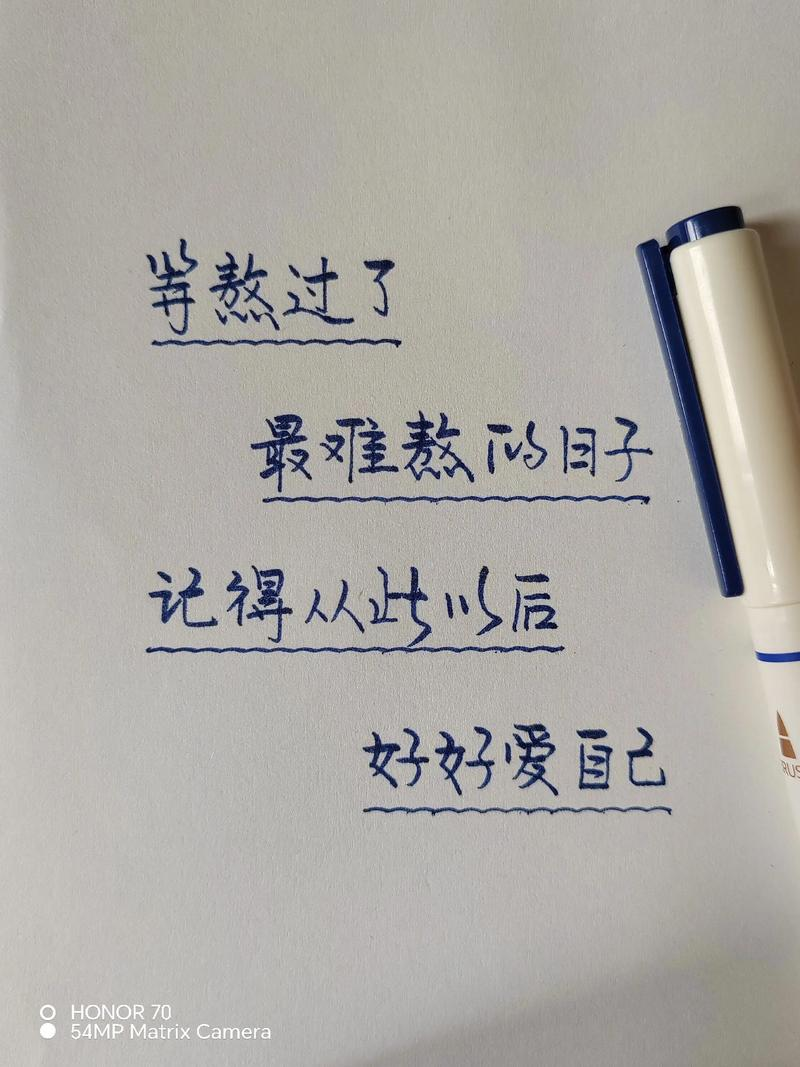 等熬过了
最难熬的日子
记得从此以后
好好爱自己
RUS
HONOR 70
54MP Matrix Camera